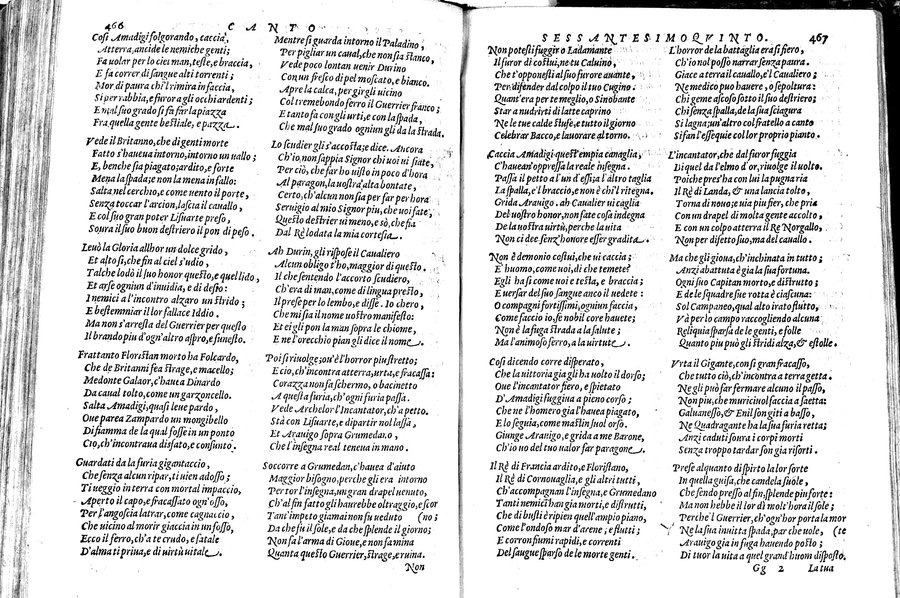 466
CANTO
Così Amadigi folgorando, caccia,
Atterra, ancide le nemiche genti;
Fa uolar per lo ciel man, teste, e braccia,
E fa correr di sangue alti torrenti;
Mor di paura chi'l rimira in faccia,
Si perrabbia, e furor a gli occhi ardenti;
E mal suo grado si fa far la piazza
Fra quella gente bestiale, e pazza.
Vede il Britanno, che di genti morte
Fatto s'haueua intorno, intorno un uallo;
E, benche sia piagato; ardito, e forte
Mena la spada; e non la mena in fallo:
Salta nel cerchio, e come uento il porte,
Senza toccar l'arcion, lascia il cauallo,
E col suo gran poter Lisuarte preso,
Soura il suo buon destriero il pon di peso.
Leuò la Gloria allhor un dolce grido,
Et alto sì, che fin al ciel s'udio,
Tal che lodò il suo honor questo, e quel lido,
Et arse ogniun d'inuidia, e di desio:
I nemici a l'incontro alzaro un strido;
E bestemmiar il lor fallace Iddio.
Ma non s'arresta del Guerrier per questo
Il brando piu d'ogn'altro aspro, e funesto.
Frattanto Florestan morto ha Folcardo,
Che de Britanni fea strage, e macello;
Medonte Galaor, c'hauea Dinardo
Da caual tolto, come un garzoncello.
Salta Amadigi, quasi leue pardo,
Oue parea Zampardo un mongibello
Di fiamma de la qual fosse in un ponto
Ciò, ch'incontraua disfato, e consunto.
Guardati da la furia gigantaccio,
Che senza alcun ripar, ti uien adosso;
Ti ueggio in terra con mortal impaccio,
Aperto il capo, e fracassato ogn'osso,
Per l'angoscia latrar, come cagnaccio,
Che uicino al morir giaccia in un fosso,
Ecco il ferro, ch'a te crudo, e fatale
D'alma ti priua, e di uirtù uitale.
Mentre si guarda intorno il Paladino,
Per pigliar un caual, che non sia stanco,
Vede poco lontan uenir Durino
Con un fresco di pel moscato, e bianco.
Apre la calca, per girgli uicino
Col tremebondo ferro il Guerrier franco;
E tanto fa con gli urti, e con la spada,
Che mal suo grado ogniun gli da la strada.
Lo scudier gli s'accosta; e dice. Ancora
Ch'io non sappia Signor chi uoi ui siate,
Per ciò, che far ho uisto in poco d'hora
Al paragon, la uostr'alta bontate,
Certo, ch'alcun non sia per far per hora
Seruigio al mio Signor piu, che uoi fate,
Questo destrier ui meno, e sò, che sia
Dal Rè lodata la mia cortesia.
Ah Durin, gli rispose il Caualiero
Alcun obligo t'ho, maggior di questo.
Il che sentendo l'accorto scudiero,
Ch'era di man, come di lingua presto,
Il prese per lo lembo, e disse. Io chero,
Che mi sia il nome uostro manifesto:
Et ei gli pon la man sopra le chiome,
E ne l'orecchio pian gli dice il nome.
Poi si riuolge; ou'è l'horror piu stretto;
E ciò, ch'incontra atterra, urta, e fracassa:
Corazza non fa schermo, o bacinetto
A questa furia, ch'ogni furia passa.
Vede Archelor l'Incantator, ch'a petto
Stà con Lisuarte, e dipartir nol lassa,
Et Arauigo sopra Grumedano,
Che l'insegna real teneua in mano.
Soccorre a Grumedan, c'hauea d'aiuto
Maggior bisogno, perche gli era intorno
Per tor l'insegna, un gran drapel uenuto,
Ch'al fin fatto gli haurebbe oltraggio, e scor
Tant'impeto giamai non fu ueduto (no;
Da che fu il sole, e da che splende il giorno;
Non fa l'arma di Gioue, e non fa mina
Quanta questo Guerrier, strage, e ruina.
Non
SESSANTESIMOQVINTO.
467
Non potesti fuggir o Ladamante
Il furor di costui, ne tu Caluino,
Che t'opponesti al suo furore auante,
Per difender dal colpo il tuo Cugino.
Quant'era per te meglio, o Sinobante
Star a nudrirti di latte caprino
Ne le tue calde stufe, e tutto il giorno
Celebrar Bacco, e lauorare al torno.
Caccia Amadigi quest'empia canaglia,
C'hauean'oppressa la reale insegna;
Passa il petto a l'un d'essi, a l'altro taglia
La spalla, e'l braccio, e non è chi'l ritegna,
Grida Arauigo. ah Caualier ui caglia
Del uostro honor, non fate cosa indegna
De la uostra uirtù, perche uiltate
Non ci dee senz'honore esser gradita.
Non è demonio costui, che ui caccia;
E' huomo, come uoi, di che temete?
Egli ha sì come uoi e testa, e braccia;
E uersar del suo sangue anco il uedete:
Compagni fortissimi, ogniun faccia,
Come faccio io, se nobil core hauete;
Non è la fuga strada a la salute;
Ma l'animoso ferro, a la uirtute.
Così dicendo corre disperato,
Che la uittoria già gli ha uolto il dorso;
Oue l'incantator fiero, e spietato
D'Amadigi fuggiua a pieno corso;
Che ne l'homero già l'hauea piagato,
E lo seguia, come mastin suol orso.
Giunge Arauigo, e grida a me Barone,
Ch'io uo del tuo ualor far paragone.
Il Rè di Francia ardito, e Floristano,
Il Rè di Cornouaglia, e gli altri tutti,
Ch'accompagnan l'insegna, e Grumedano
Tanti nemici han gia morti, e distrutti,
Che di busti è ripien quell'ampio piano,
Come l'ondoso mar d'arene, e flutti;
E corron fiumi rapidi, e correnti
Del sangue sparso de le morte genti.
L'horror de la battaglia era sì fiero,
Ch'io nol posso narrar senza paura.
Giace a terra il cauallo, e'l Caualiero;
Ne medico puo hauere, o sepoltura:
Chi geme ascoso sotto il suo destriero;
Chi senza spalla, de la sua sciagura
Si lagna; un'altro col fratello a canto
Si fan l'essequie col lor proprio pianto.
L'incantator, che dal furor fuggia
Di quel da l'elmo d'or, riuolge il uolto.
Poiche pres'ha con lui la pugna ria
Il Rè di Landa, & una lancia tolto,
Torna di nouo; e uia piu fier, che pria
Con un drapel di molta gente accolto,
E con un colpo atterra il Re Norgallo,
Non per difetto suo, ma del cauallo.
Ma che gli gioua, ch'inchinata in tutto;
Anzi abattuta è gia la sua fortuna.
Ogni suo Capitan morto, e distrutto;
E de le squadre sue rotta è ciascuna:
Sol Campaneo, qual alto irato flutto,
Và per lo campo raccogliendo alcuna
Reliquia sparsa de le genti, e folle
Quanto piu può gli stridi alza, & estolle.
Vrta il Gigante, con sì gran fracasso,
Che tutto ciò, ch'incontra a terra getta.
Ne gli può far fermare alcuno il passo,
Non piu, che muricciuol faccia a saetta:
Galuanesso, & Enil son giti a basso,
Ne Quadragante ha la sua furia retta;
Anzi caduti soura i corpi morti
Senza troppo tardar son gia risorti.
Prese alquanto di spirto la lor sorte
In quella guisa, che candela suole,
Che sendo presso al fin, splende piu forte:
Ma non hebbe il lor dì molt'hora il sole;
Perche'l Guerrier, ch'ogn'hor porta la mor
Ne la sua inuitta spada, par che uole, (te
Arauigo già in fuga hauendo posto;
Di tuor la uita a quel grand'huom disposto.
Gg 2
La tua